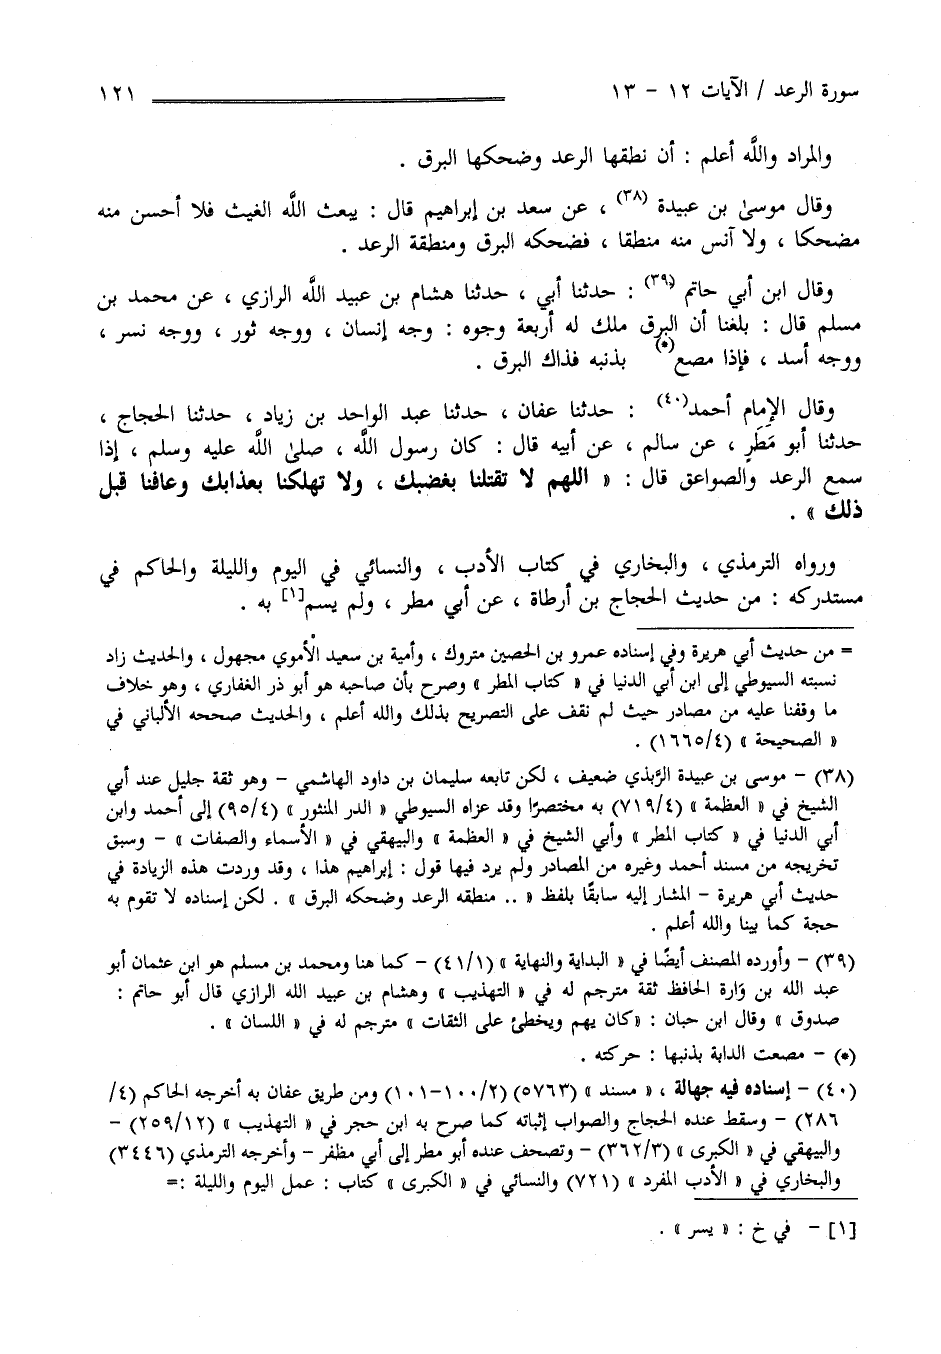 سورة الرعد / الآيات ١٢ - ١٣ ١٢١
والمراد واللَّه أعلم : أن نطقها الرعد وضحكها البرق .
وقال موسىٰ بن عبيدة (٣٨) ، عن سعد بن إبراهيم قال : يبعث اللَّه الغيث فلا أحسن منه
مضحكا ، ولا آنس منه منطقا ، فضحكه البرق ومنطقة الرعد .
وقال ابن أبي حاتم (٣٩) : حدثنا أبي ، حدثنا هشام بن عبيد اللَّه الرازي ، عن محمد بن
مسلم قال : بلغنا أن البرق ملك له أربعة وجوه : وجه إنسان ، ووجه ثور ، ووجه نسر ،
ووجه أسد ، فإذا مصع(*) بذنبه فذاك البرق .
وقال الإمام أحمد(٤٠) : حدثنا عفان ، حدثنا عبد الواحد بن زياد ، حدثنا الحجاج ،
حدثنا أبو مَطَرٍ ، عن سالم ، عن أبيه قال : كان رسول اللَّه ، صلىٰ اللَّه عليه وسلم ، إذا
سمع الرعد والصواعق قال : « اللهم لا تقتلنا بغضبك ، ولا تهلكنا بعذابك وعافنا قبل
ذلك » .
ورواه الترمذي ، والبخاري في كتاب الأدب ، والنسائي في اليوم والليلة والحاكم في
مستدركه : من حديث الحجاج بن أرطاة ، عن أبي مطر ، ولم يسم[١] به .
= من حديث أبي هريرة وفي إسناده عمرو بن الحصين متروك ، وأمية بن سعيد الأموي مجهول ، والحديث زاد
نسبته السيوطي إلى ابن أبي الدنيا في « كتاب المطر » وصرح بأن صاحبه هو أبو ذر الغفاري ، وهو خلاف
ما وقفنا عليه من مصادر حيث لم نقف على التصريح بذلك والله أعلم ، والحديث صححه الألباني في
« الصحيحة » (١٦٦٥/٤) .
(٣٨) - موسى بن عبيدة الرَّبذي ضعيف ، لكن تابعه سليمان بن داود الهاشمي - وهو ثقة جليل عند أبي
الشيخ في « العظمة » (٧١٩/٤) به مختصرًا وقد عزاه السيوطي « الدر المنثور » (٩٥/٤) إلى أحمد وابن
أبي الدنيا في « كتاب المطر » وأبي الشيخ في « العظمة » والبيهقي في « الأسماء والصفات » - وسبق
تخريجه من مسند أحمد وغيره من المصادر ولم يرد فيها قول : إبراهيم هذا ، وقد وردت هذه الزيادة في
حديث أبي هريرة - المشار إليه سابقًا بلفظ « .. منطقه الرعد وضحكه البرق » . لكن إسناده لا تقوم به
حجة كما بينا والله أعلم .
(٣٩) - وأورده المصنف أيضًا في « البداية والنهاية » (٤١/١) - كما هنا ومحمد بن مسلم هو ابن عثمان أبو
عبد الله بن وَارة الحافظ ثقة مترجم له في « التهذيب » وهشام بن عبيد الله الرازي قال أبو حاتم :
صدوق » وقال ابن حبان : «كان يهم ويخطئ على الثقات » مترجم له في « اللسان » .
(*) - مصعت الدابة بذنبها : حركته .
(٤٠) - إسناده فيه جهالة ، « مسند » (٥٧٦٣) (١٠٠/٢-١٠١) ومن طريق عفان به أخرجه الحاكم (٤/
٢٨٦) - وسقط عنده الحجاج والصواب إثباته كما صرح به ابن حجر في « التهذيب » (٢٥٩/١٢) -
والبيهقي في « الكبرى » (٣٦٢/٣) - وتصحف عنده أبو مطر إلى أبي مظفر - وأخرجه الترمذي (٣٤٤٦)
والبخاري في « الأدب المفرد » (٧٢١) والنسائي في « الكبرى » كتاب : عمل اليوم والليلة :=
[١] - في خ : « يسر » .